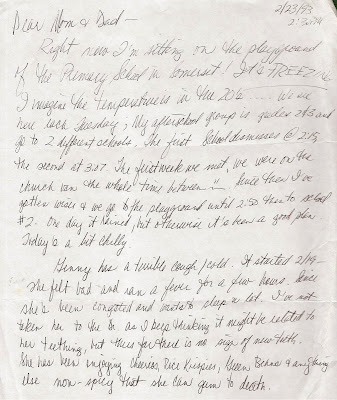 2/23/93
2:30pm
Dear Mom & Dad -
Right now I'm sitting on the playground
of the Primary School in Somerset! It's FREEZING
I imagine the temperature is in the 20's..... We're
here each Tuesday; My afterschool group is grades 2&3 and
go to 2 different schools. The first school dismisses @ 2:15,
the second at 3:07. The first week we met, we were on the
church van the whole time between. Since then I've
gotten wise & we go to the playground until 2:50 then to school
#2. One day it rained, but otherwise it's been a good plan
Today's a bit chilly.
Ginny has a terrible cough/cold. It started 2/19 -
she felt bad and ran a fever for a few hours. Since
she's been congested and wants to sleep a lot. I've not
taken her to the Dr. as I keep thinking it might be related to
her teething, but thus far there is no sign of new teeth.
She has been enjoying cheerios, Rice Krispies, Green Beans & anything
else non-spicy that she can gum to death.